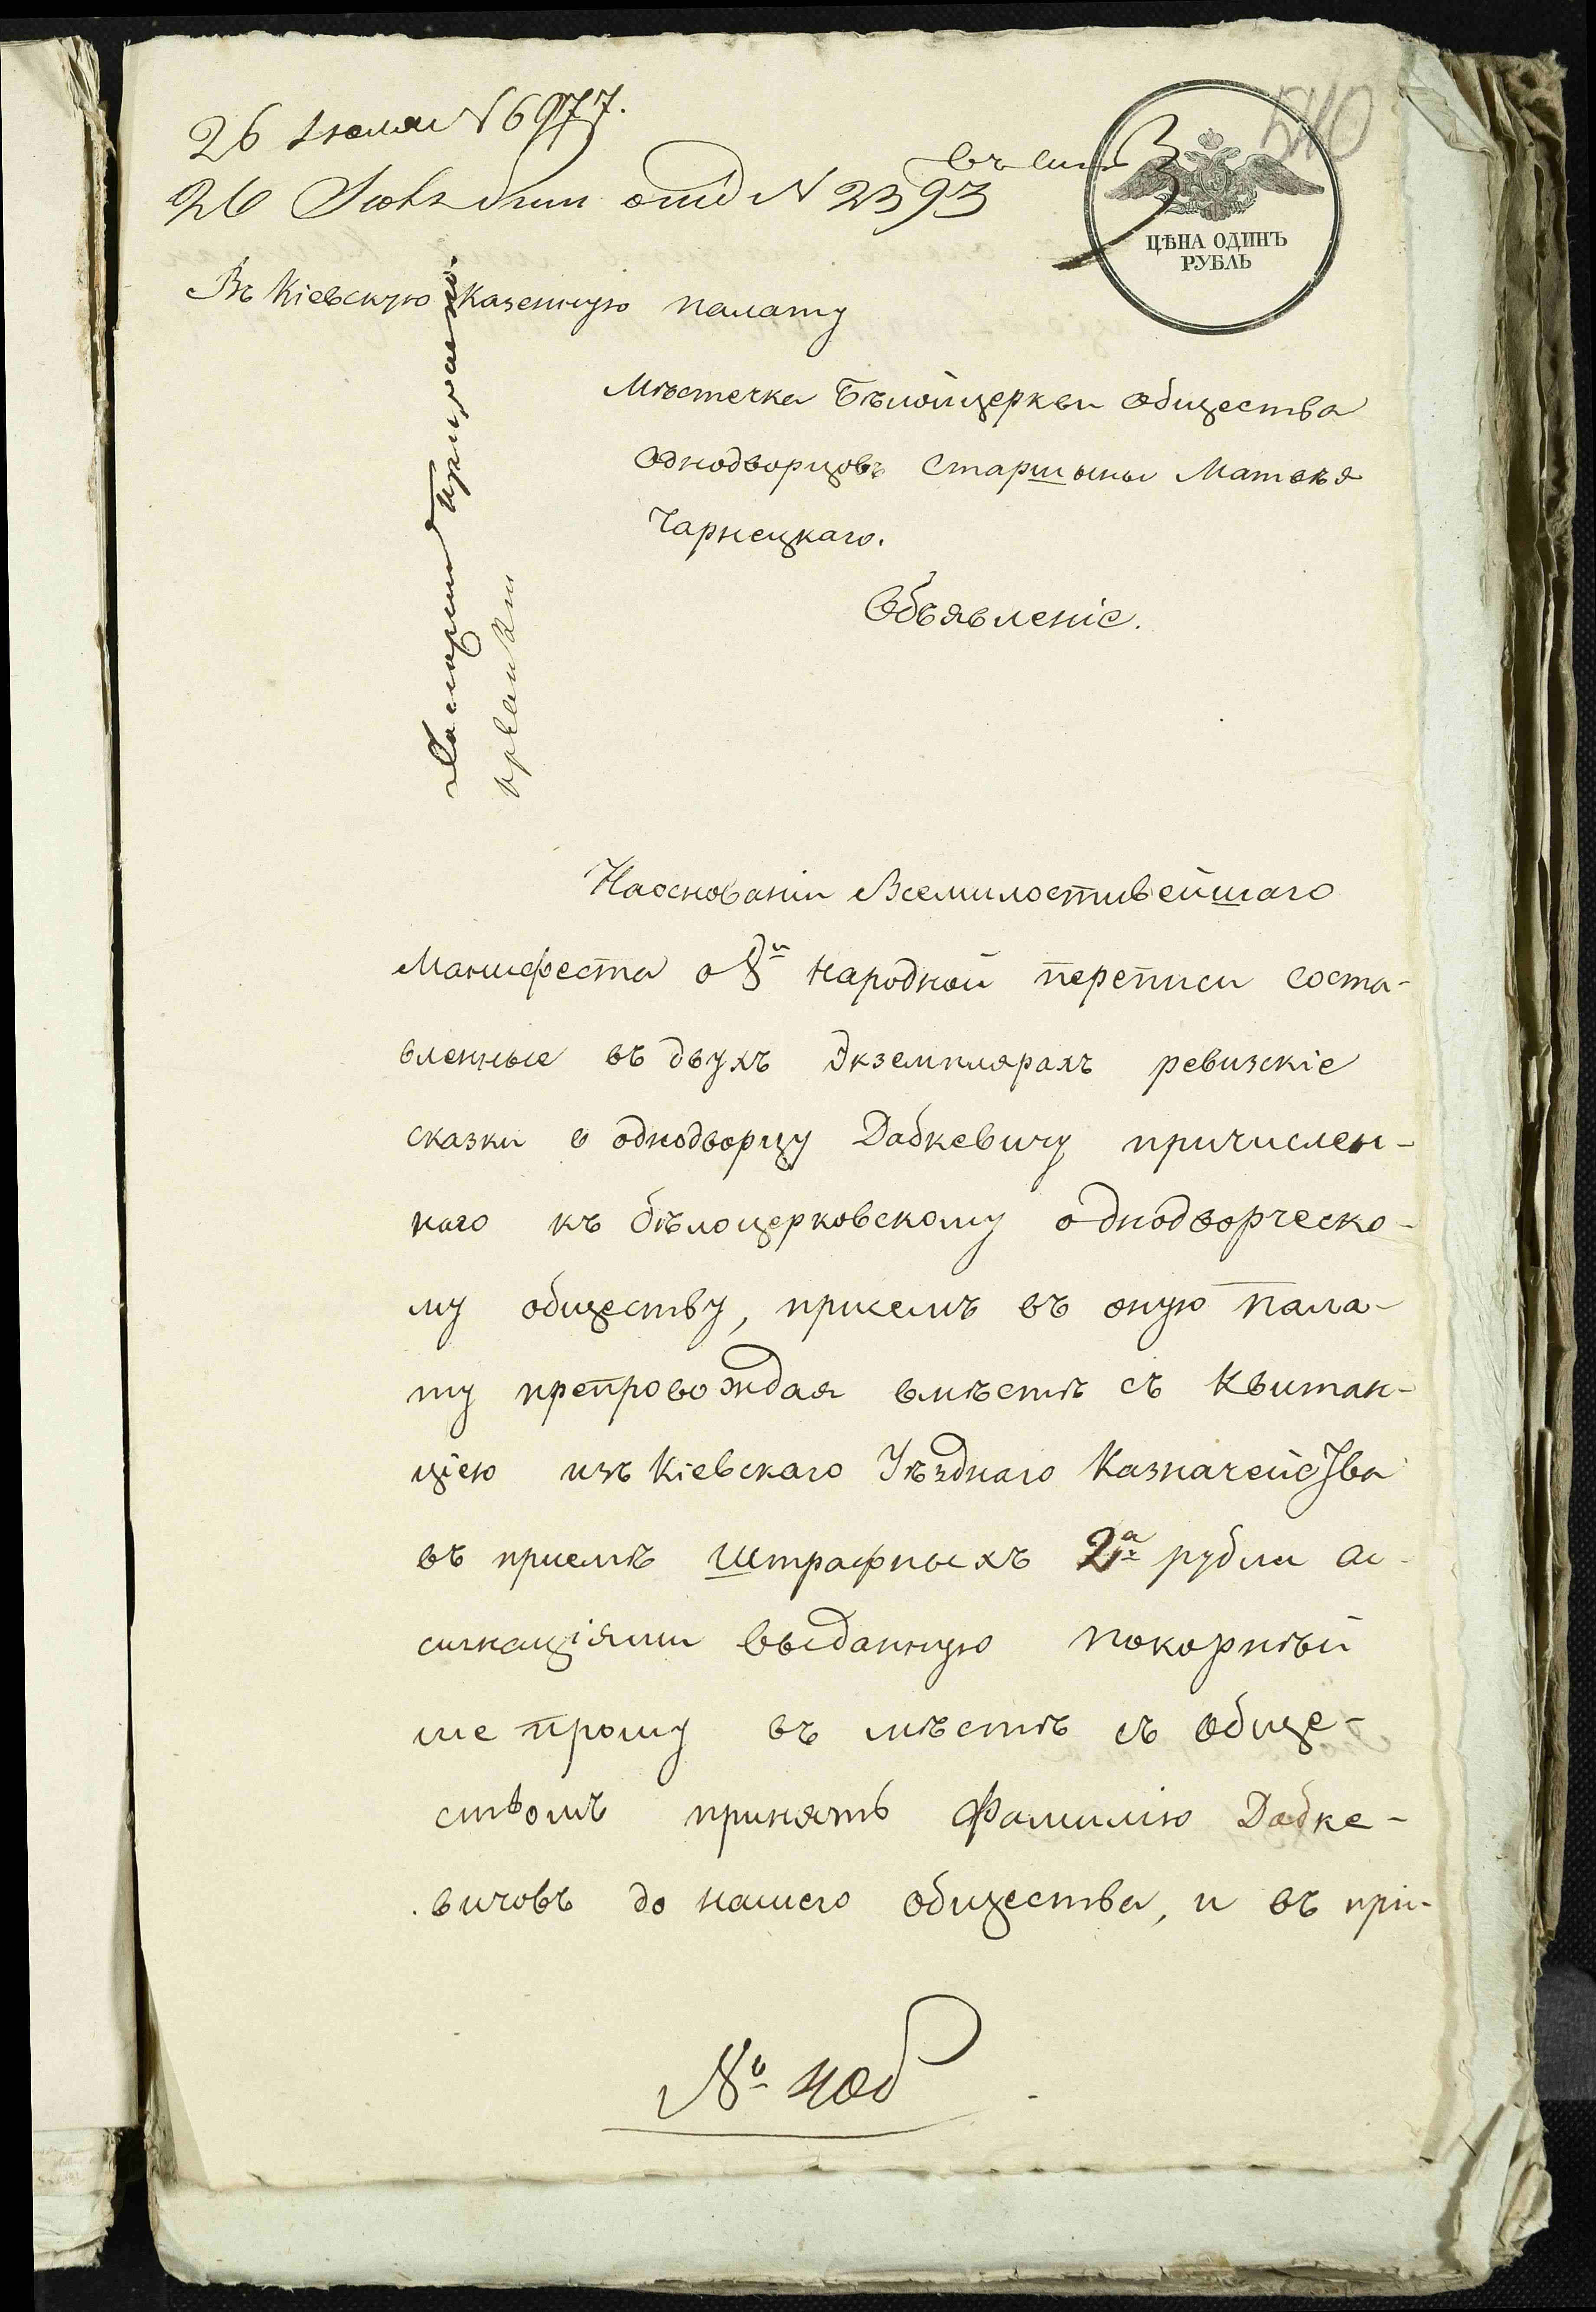 26 Іюля N 6977.
26 отд N 2393
ЦѢНА ОДИНЪ
РУБЛЬ
Въ Кіевскую Казенную палату
Мѣстечка Бѣлойцеркви общества
Однодворцовъ Старшыны Матвѣя
Чарнецкаго.
Объявленіе.
Наоснованіи Всемилостивейшаго
Манифеста о 8й народной переписи соста-
вленные въ двухъ экземплярахъ ревизскіе
сказки о однодворцу Дабкевичу причислен-
наго къ бѣлоцерковскому однодворческо-
му обществу, присемъ въ оную Пала-
ту препровождая вмѣстѣ съ Квитан-
цією изъ Кіевскаго Уѣзднаго Казначейства
въ приемѣ штрафныхъ 2а рубли ас-
сигнаціями выданную покорнѣй
ше прошу въ мѣстѣ съ обще-
ствомъ принять Фамилію Дабке-
вичовъ до нашего общества, и въ при-
№